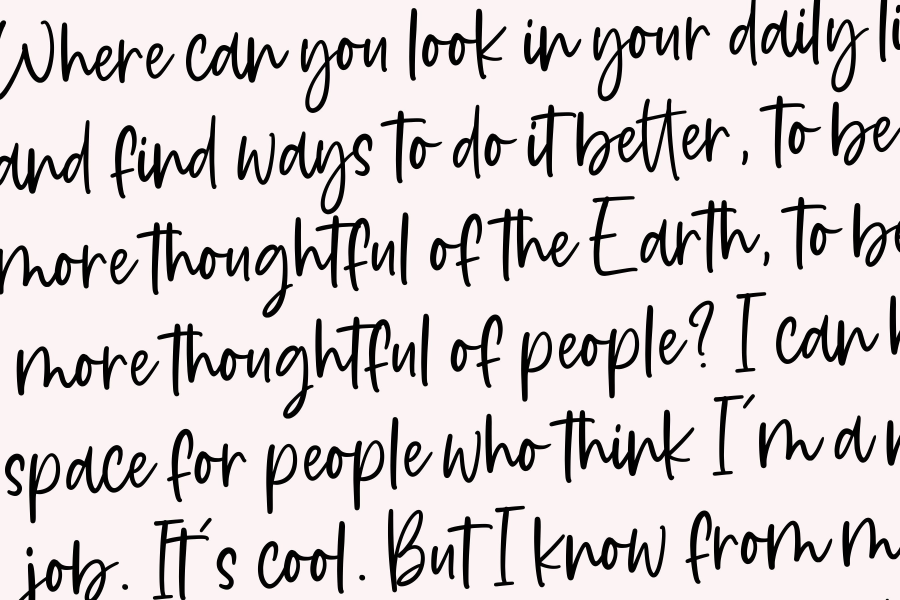 Where can you look in your daily li
and find ways to do it better, to be
more thoughtful of the Earth, to be
more thoughtful of people? I can h
space for people who think I'm a n
job. It's cool. But I know from m